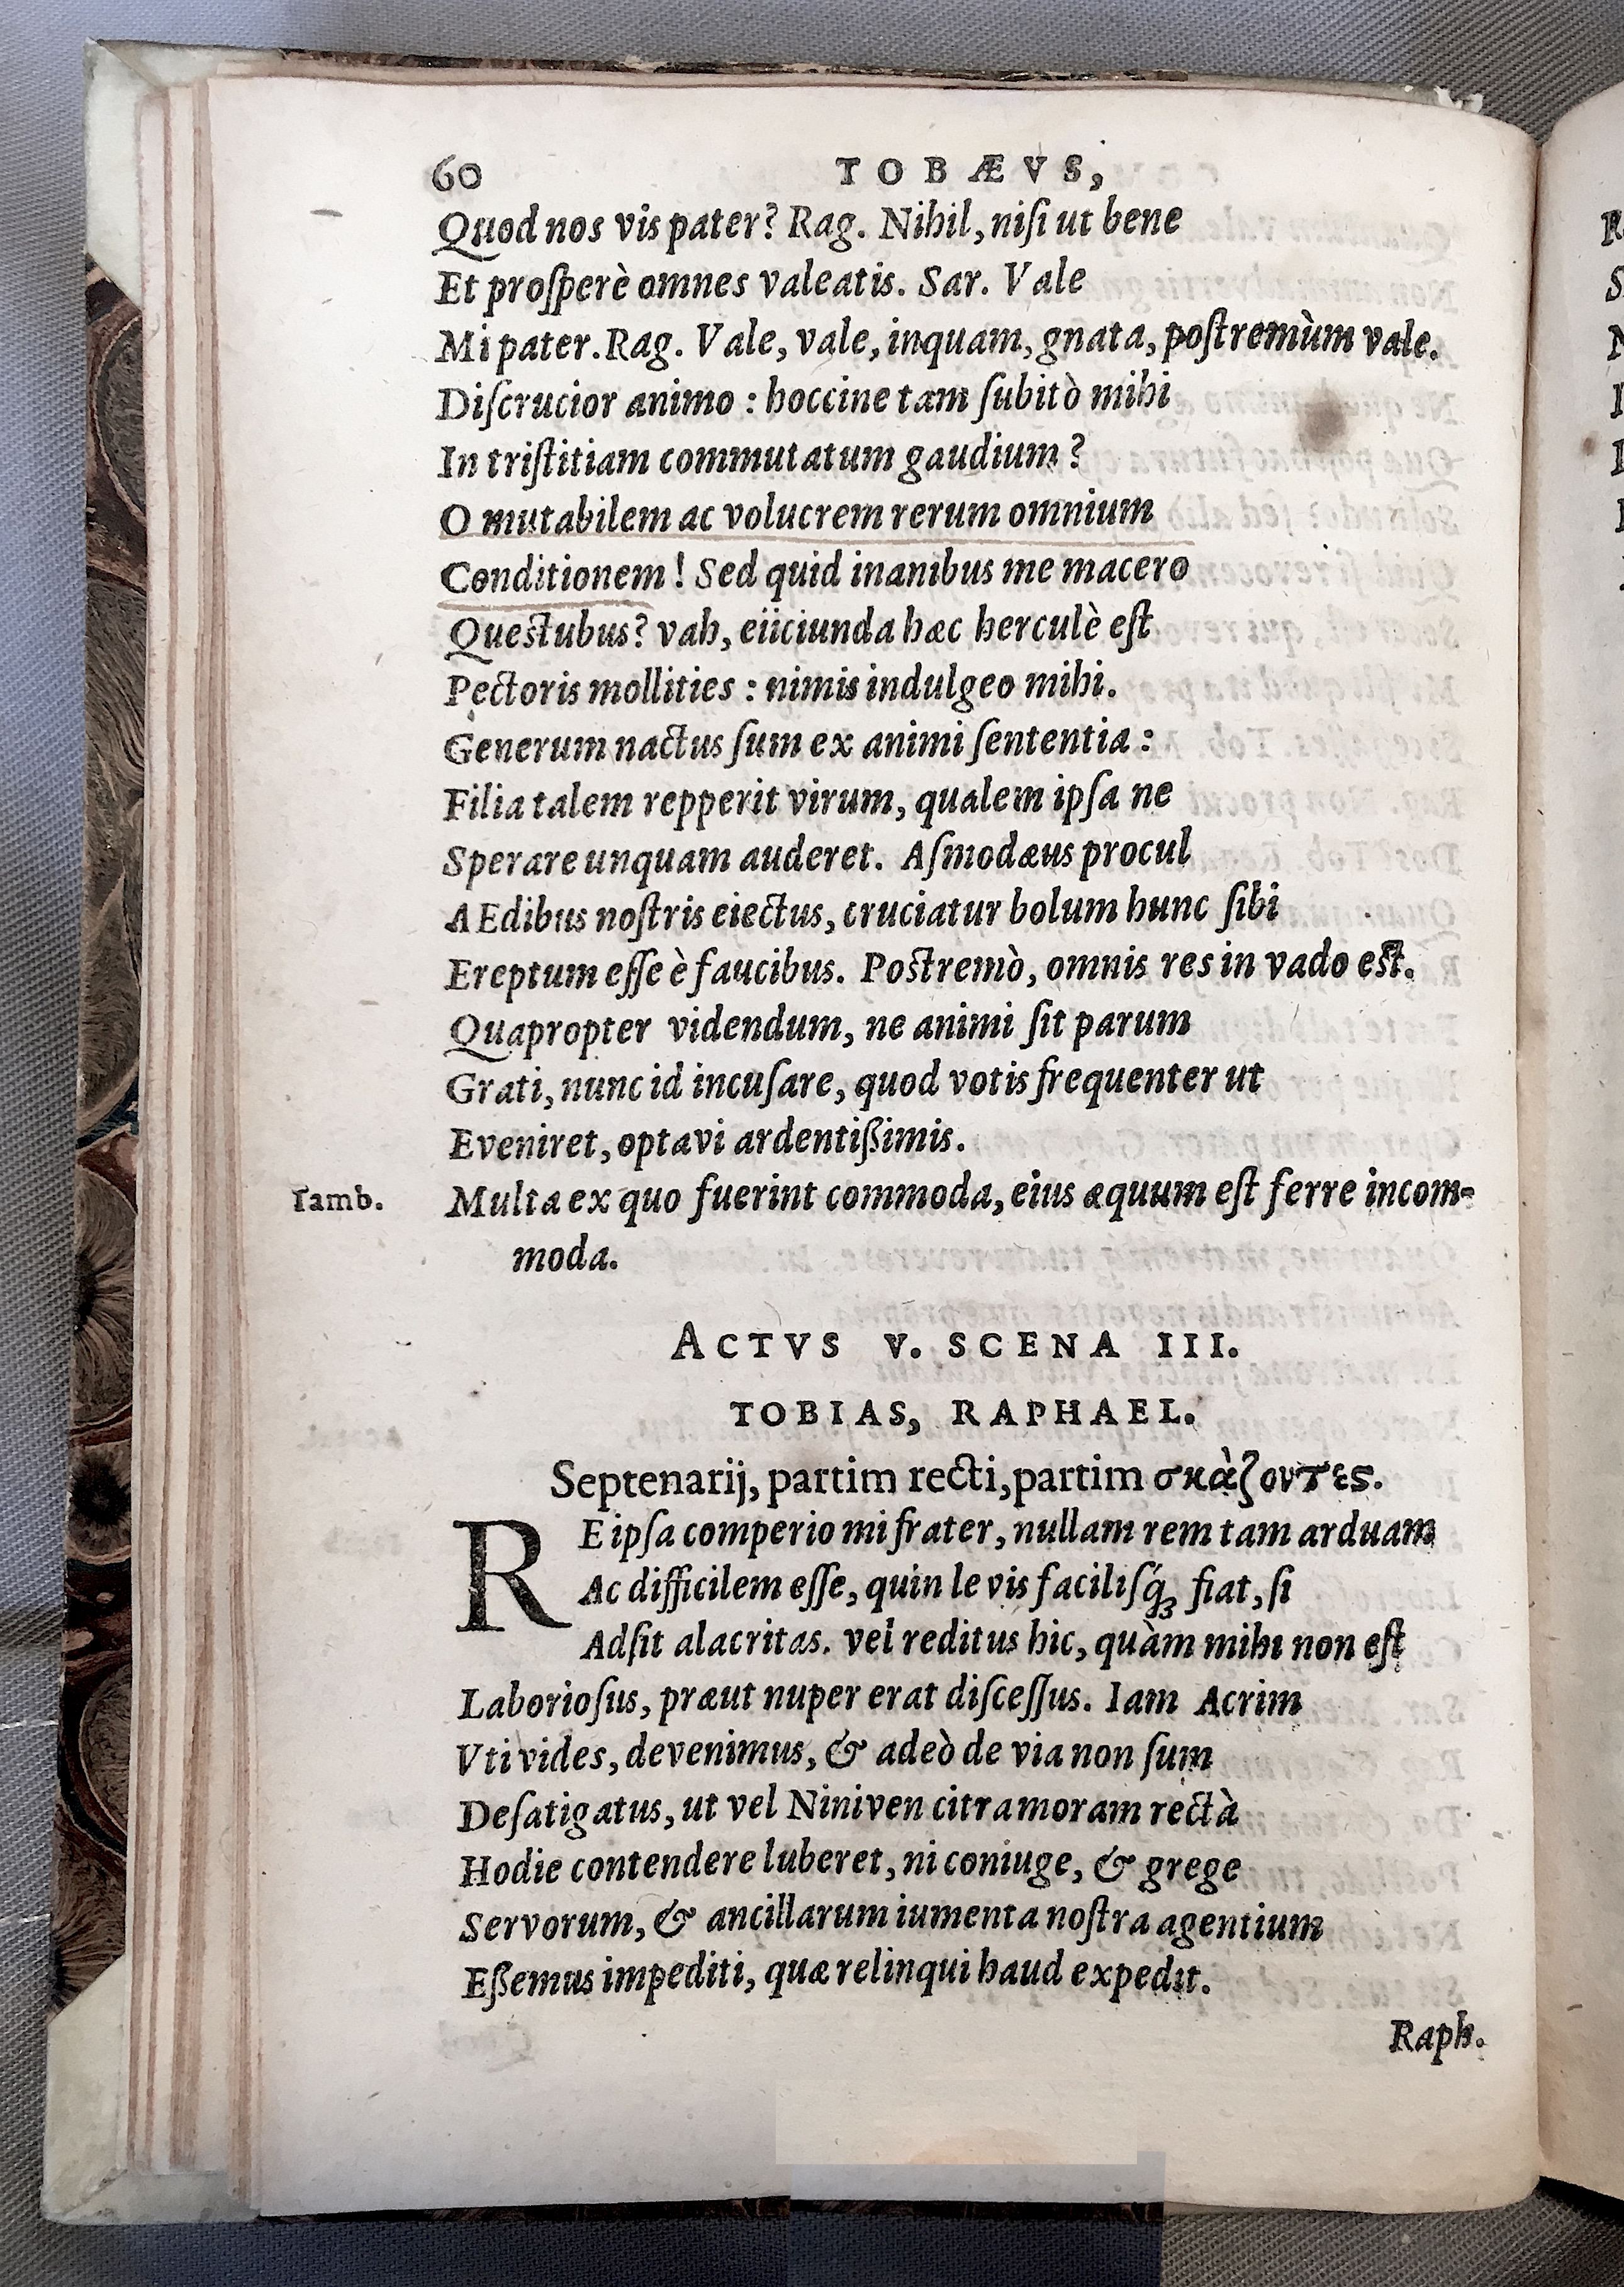 60 TOBÆVS,
Quod nos vis pater? Rag. Nihil, niſi ut bene
Et proſperè omnes valeatis. Sar. Vale
Mi pater. Rag. Vale, vale, inquam, gnata, poſtremùm vale.
Diſcrucior animo : hoccine tam ſubitò mihi
In triſtitiam commutatum gaudium ?
O mutabilem ac volucrem rerum omnium
Conditionem ! Sed quid inanibus me macero
Questubus? vah, eiiciunda hæc herculè eſt
Pectoris mollities : nimis indulgeo mihi.
Generum nactus ſum ex animi ſententia :
Filia talem repperit virum, qualem ipſa ne
Sperare unquam auderet. Aſmodæus procul
AEdibus noſtris eiectus, cruciatur bolum hunc ſibi
Ereptum eſſe è faucibus. Postremò, omnis res in vado est.
Quapropter videndum, ne animi ſit parum
Grati, nunc id incuſare, quod votis frequenter ut
Eveniret, optavi ardentißimis.
Iamb. Multa ex quo fuerint commoda, eius æquum eſt ferre incom-
moda.
ACTVS V. SCENA III.
TOBIAS, RAPHAEL.
Septenarij, partim recti, partim σκὰζοντες.
REipſa comperio mi frater, nullam rem tam arduam
Ac difficilem eſſe, quin levis faciliſq́ꝫ fiat, ſi
Adſit alacritas. vel reditus hic, quàm mihi non eſt
Laborioſus, præut nuper erat diſceſſus. Iam Acrim
Vti vides, devenimus, & adeò de via non ſum
Defatigatus, ut vel Niniven citra moram rectà
Hodie contendere luberet, ni coniuge, & grege
Servorum, & ancillarum iumenta noſtra agentium
Eßemus impediti, quæ relinqui haud expedit.
Raph.